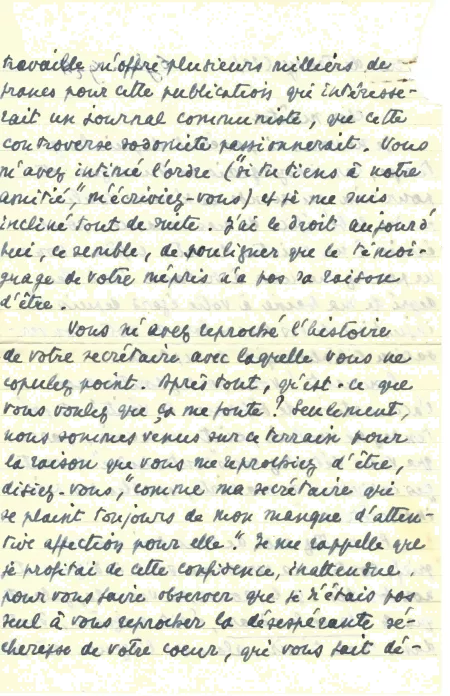 travaille m'offre plusieurs milliers de
francs pour cette publication qui intéresse-
rait un journal communiste, que cette
controverse sodomite passionnerait. Vous
m'avez intimé l'ordre ("si tu tiens à notre
amitié," m'écriviez-vous) et je me suis
incliné tout de suite. J'ai le droit aujourd'
hui, ce semble, de souligner que le témoi-
gnage de votre mépris n'a pas sa raison
d'être.
Vous m'avez reproché l'histoire
de votre secrétaire avec laquelle vous ne
copulez point. Après tout, qu'est-ce que
vous voulez que ça me foute ? Seulement,
nous sommes venus sur ce terrain pour
la raison que vous me reprochiez d'être,
disiez-vous, "comme ma secrétaire qui
se plaint toujours de mon manque d'atten-
tive affection pour elle." Je me rappelle que
je profitai de cette confidence, inattendue.
pour vous faire observer que je n'étais pas
seul à vous reprocher la désespérante sé-
cheresse de votre coeur, qui vous fait dé-